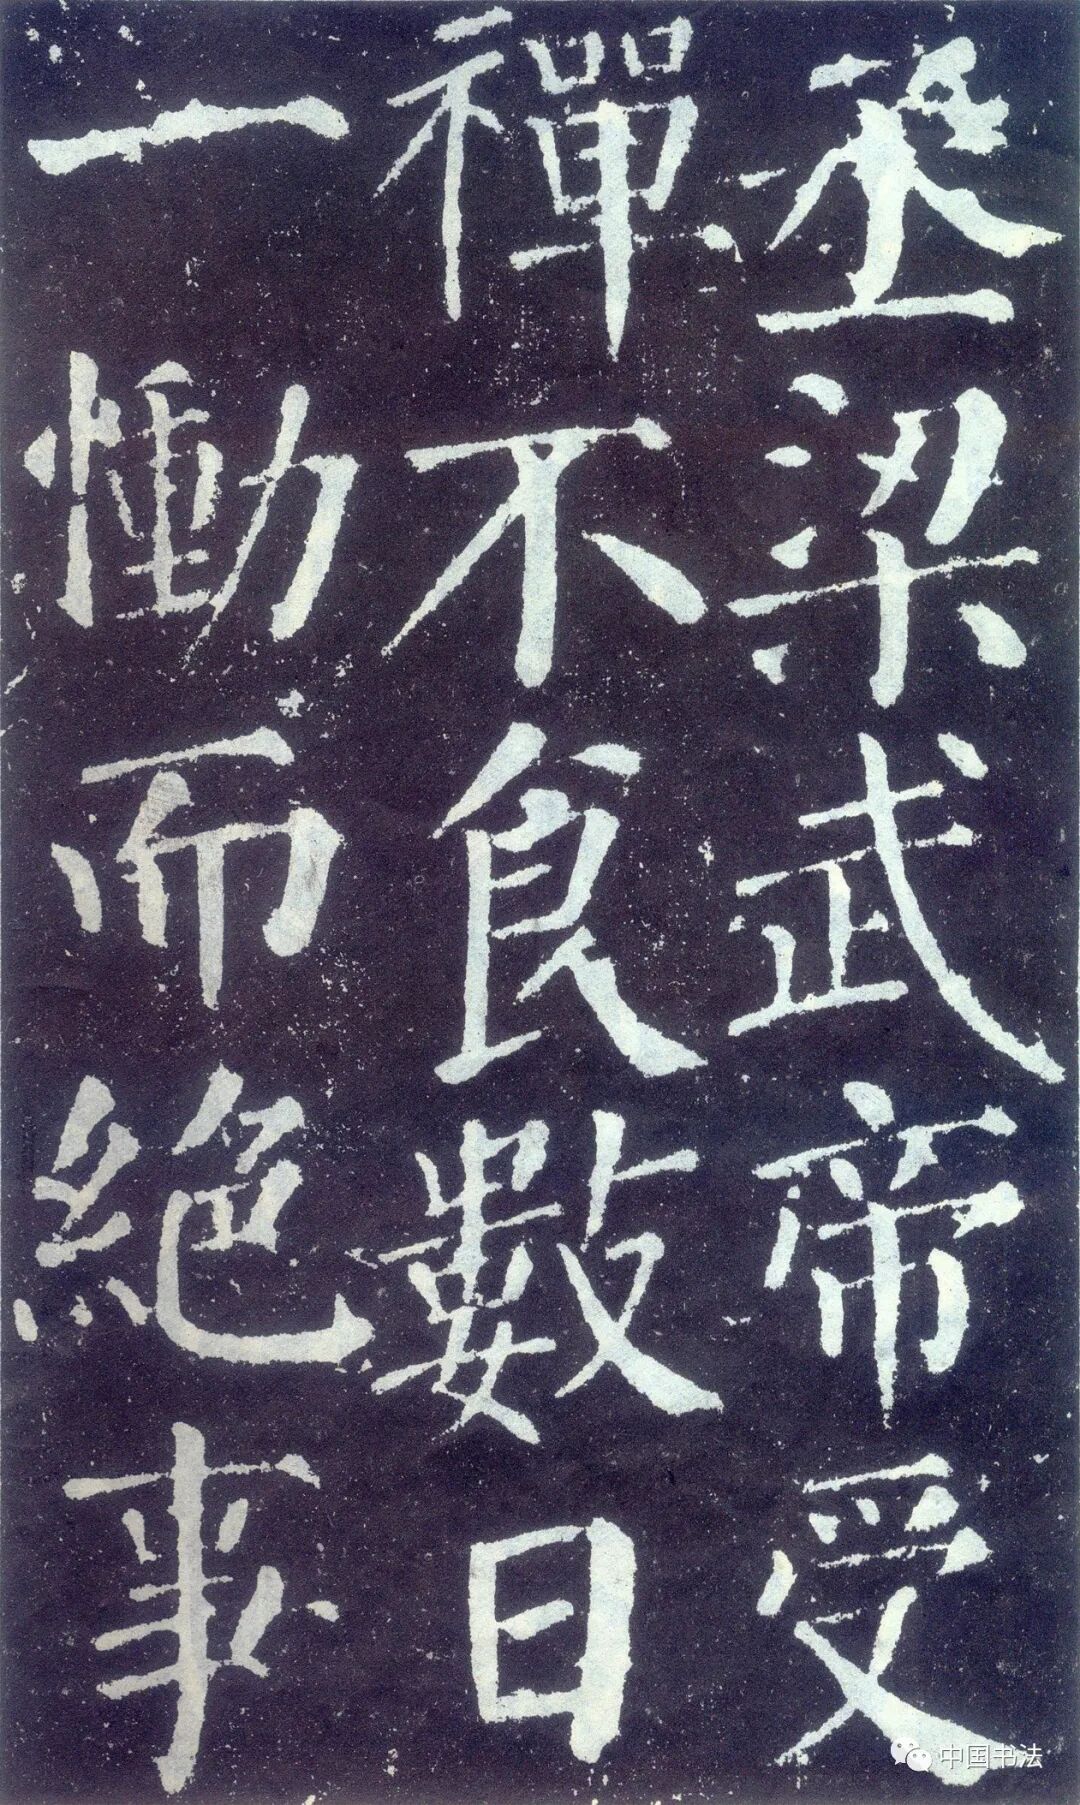 丞梁武帝受
禪不食數日
一慟而絕事
中国书法